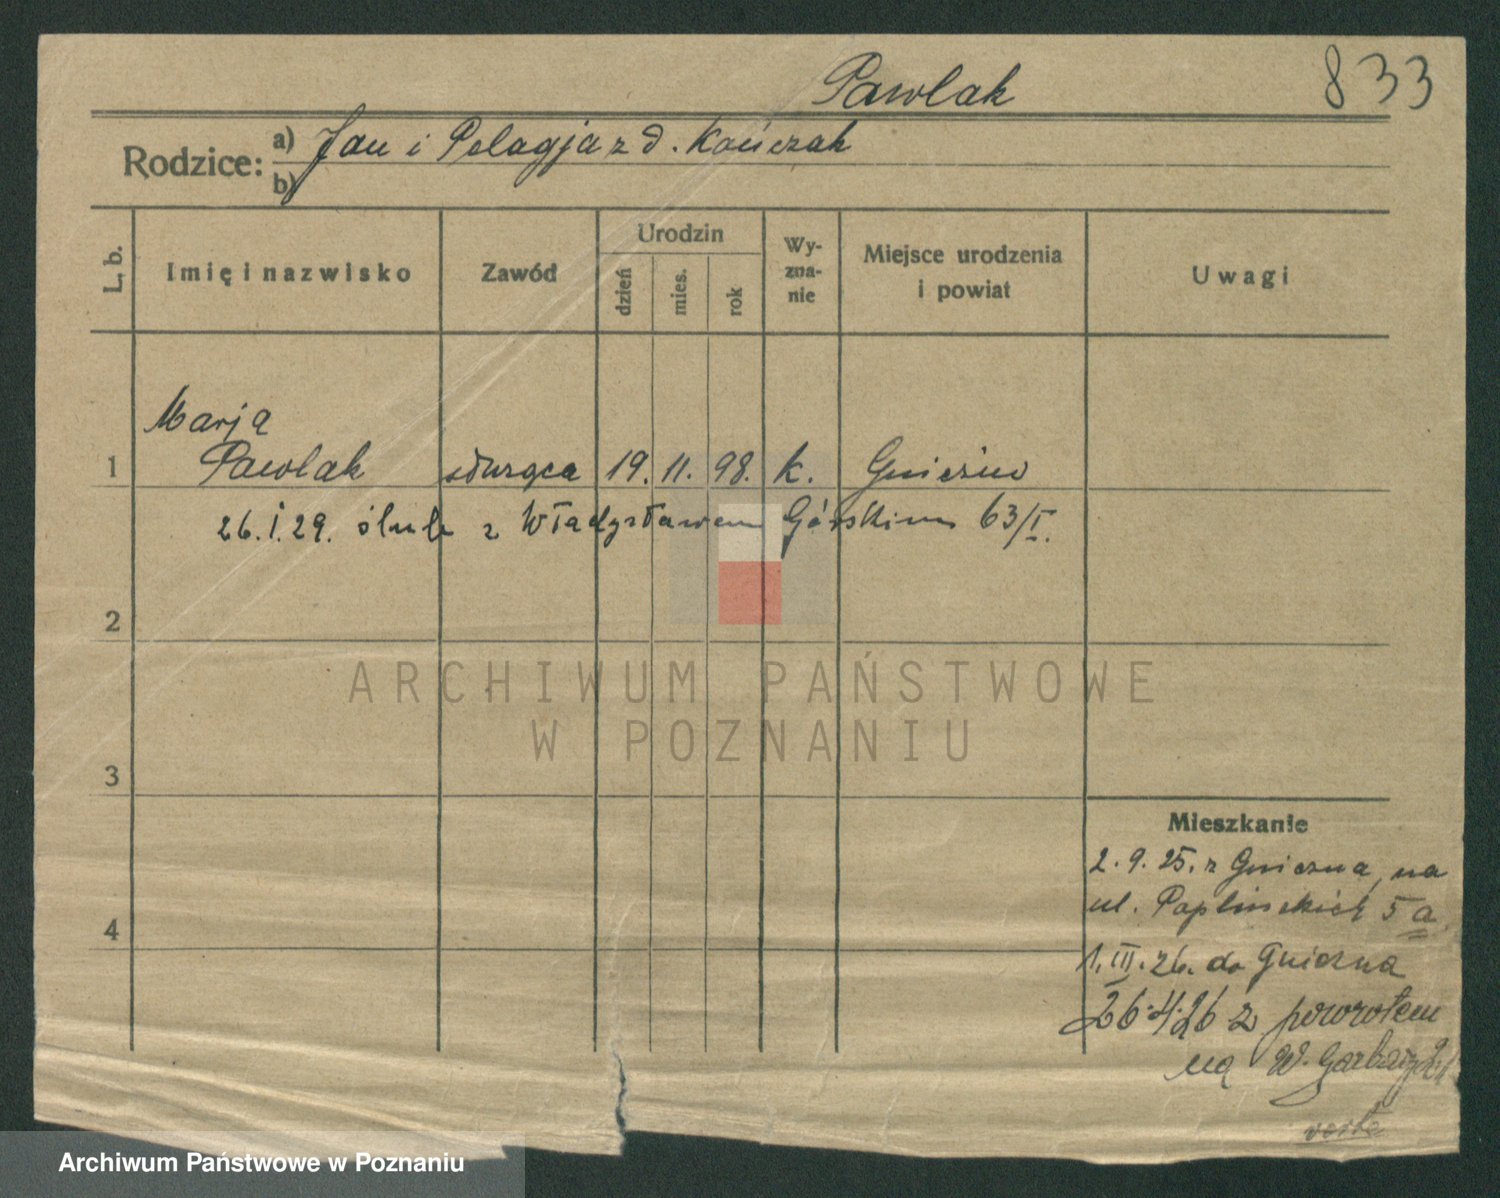 Pawlak 833
Rodzice: a) Jan i Pelagja z d. Kończak
b)
L. b. Imię i nazwisko Zawód Urodzin dzień mies. rok Wy-zna-nie Miejsce urodzenia i powiat Uwagi
Marja
1 Pawlak służąca 19. 11. 98. k. Gniezno
26.I.29. ślub z Władysławem Górskim 63/I.
2
ARCHIWUM PAŃSTWOWE
W POZNANIU
3
Mieszkanie
2.9.25. z Gniezna, na
ul. Poplińskich 5a
4
1.III.26. do Gniezna
26.4.26 z powrotem
na W. Garbary
Archiwum Państwowe w Poznaniu